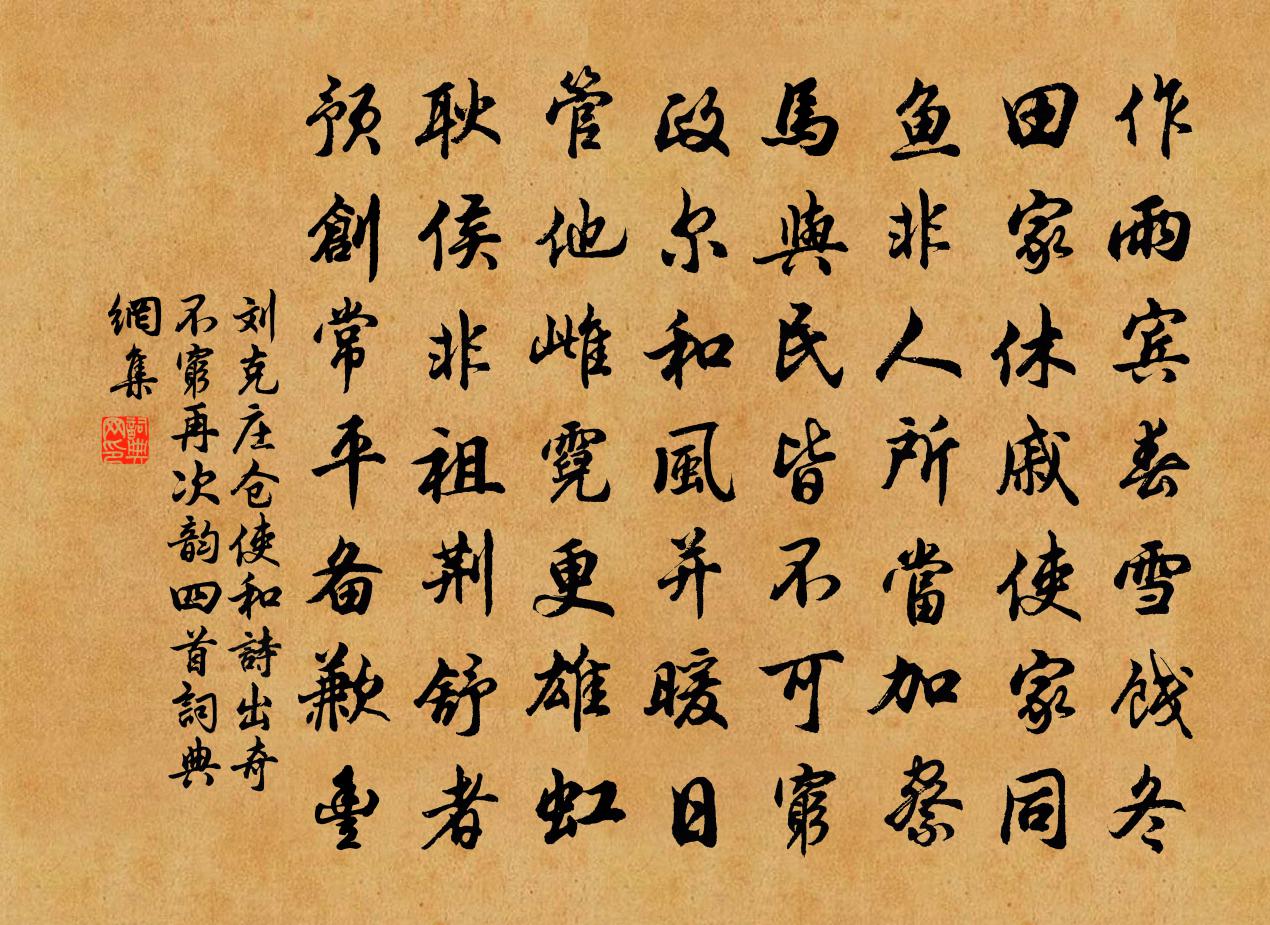 作雨宾春雪餞冬
田家休戚使家同
鱼非人所當加察
馬與民皆不可窮
政尔和風并暖日
管他雌霓更雄虹
耿侯非祖荆舒者
預創常平备歉豐
刘克庄仓使和詩出奇
不窮再次韵四首詞典
網集
詞典网印